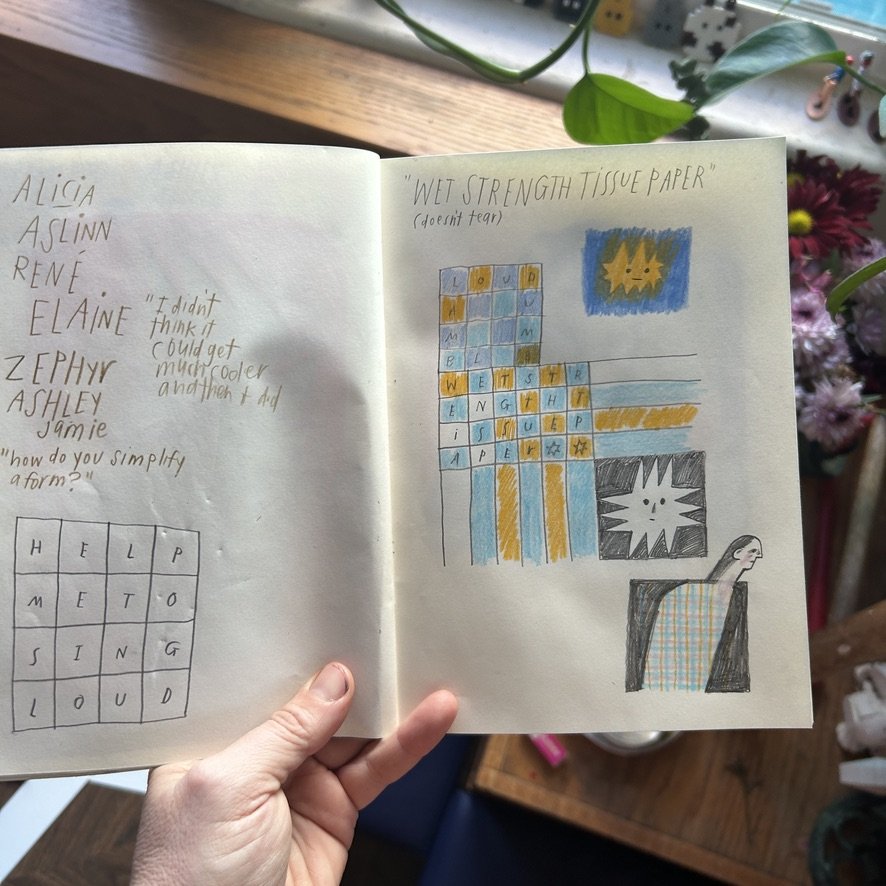 ALICIA
ASLINN
RENÉ
ELAINE
"I didn't
think it
could get
much cooler
and then it did
ZEPHYR
ASHLEY
jamie
"how do you simplify
a form?"
H E L P
M E T O
S I N G
L O U D
"WET STRENGTH TISSUE PAPER"
(doesn't tear)
L O U D
A U
M M
B L B
W E T S T R
E N G T H T
i S S U E P
A P E R